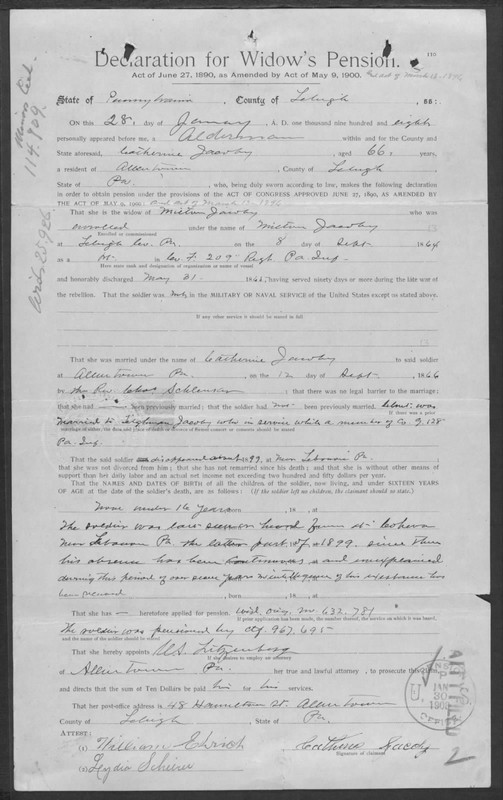 Declaration for Widow's Pension.
116
Act of June 27, 1890, as Amended by Act of May 9, 1900. and act of March 13, 1896
State of Pennsylvania, County of Lehigh, ss:
ON this 28 day of January, A. D. one thousand nine hundred and eight
personally appeared before me, a Alderman within and for the County and
State aforesaid, Catherine Jacoby, aged 66 years,
a resident of Allentown, County of Lehigh,
State of Pa., who, being duly sworn according to law, makes the following declaration
in order to obtain pension under the provisions of the ACT OF CONGRESS APPROVED JUNE 27, 1890, AS AMENDED BY
THE ACT OF MAY 9, 1900: and act of March 13 1896
That she is the widow of Milton Jacoby who was
enrolled under the name of Milton Jacoby
Enrolled or commissioned
at Lehigh Co. Pa. on the 8 day of Sept. 1864
as a in Co. F. 209" Regt Pa Inf.
Here state rank and designation or organization or vessel
and honorably discharged May 31 1865, having served ninety days or more during the late war of
the rebellion. That the soldier was not in the MILITARY OR NAVAL SERVICE of the United States except as stated above.
If any other service it should be stated in full.
That she was married under the name of Catherine Jacoby to said soldier
at Allentown Pa., on the 12 day of Sept. 1866
by the Rev. Chas. ; that there was no legal barrier to the marriage;
that she had been previously married; that the soldier had not been previously married. Claimt. was
If there was a prior
married to Tilghman Jacoby who in service while a member of Co. G, 128"
marriage of either, the date and place of death or divorce of former consort or consorts should be stated
Pa. Inf.
That the said soldier disappeared about 1899, at Near Lebanon Pa.
that she was not divorced from him; that she has not remarried since his death; and that she is without other means of
support than her daily labor and an actual net income not exceeding two hundred and fifty dollars per year.
That the NAMES AND DATES OF BIRTH of all the children of the soldier, now living, and under SIXTEEN YEARS
OF AGE at the date of the soldier's death, are as follows: (If the soldier left no children, the claimant should so state.)
None under 16 years born , 18 , at
The soldier was last seen on heard from at
near Lebanon Pa. the latter part of 1899. since then
his absence has been continuous and unexplained
during this period of over seven years no intelligence of his existence has
been received , born , 18 , at
That she has — heretofore applied for pension. wid. orig. no. 632.781
If prior application has been made, the number thereof, the service on which it was based
The soldier was pensioned by ctf. 967.695
and the name of the soldier should be stated
That she hereby appoints
If she desires to employ an attorney
of Allentown Pa. her true and lawful attorney, to prosecute this
and directs that the sum of Ten Dollars be paid him for his services.
That her post-office address is 48 Hamilton St. Allentown
County of Lehigh, State of Pa.
ATTEST:
(1) William
(2) Lydia
Catherine Jacoby
Signature of claimant
U. S.
JAN
30
OFFICE
2
Minors Ctf.
114.909.